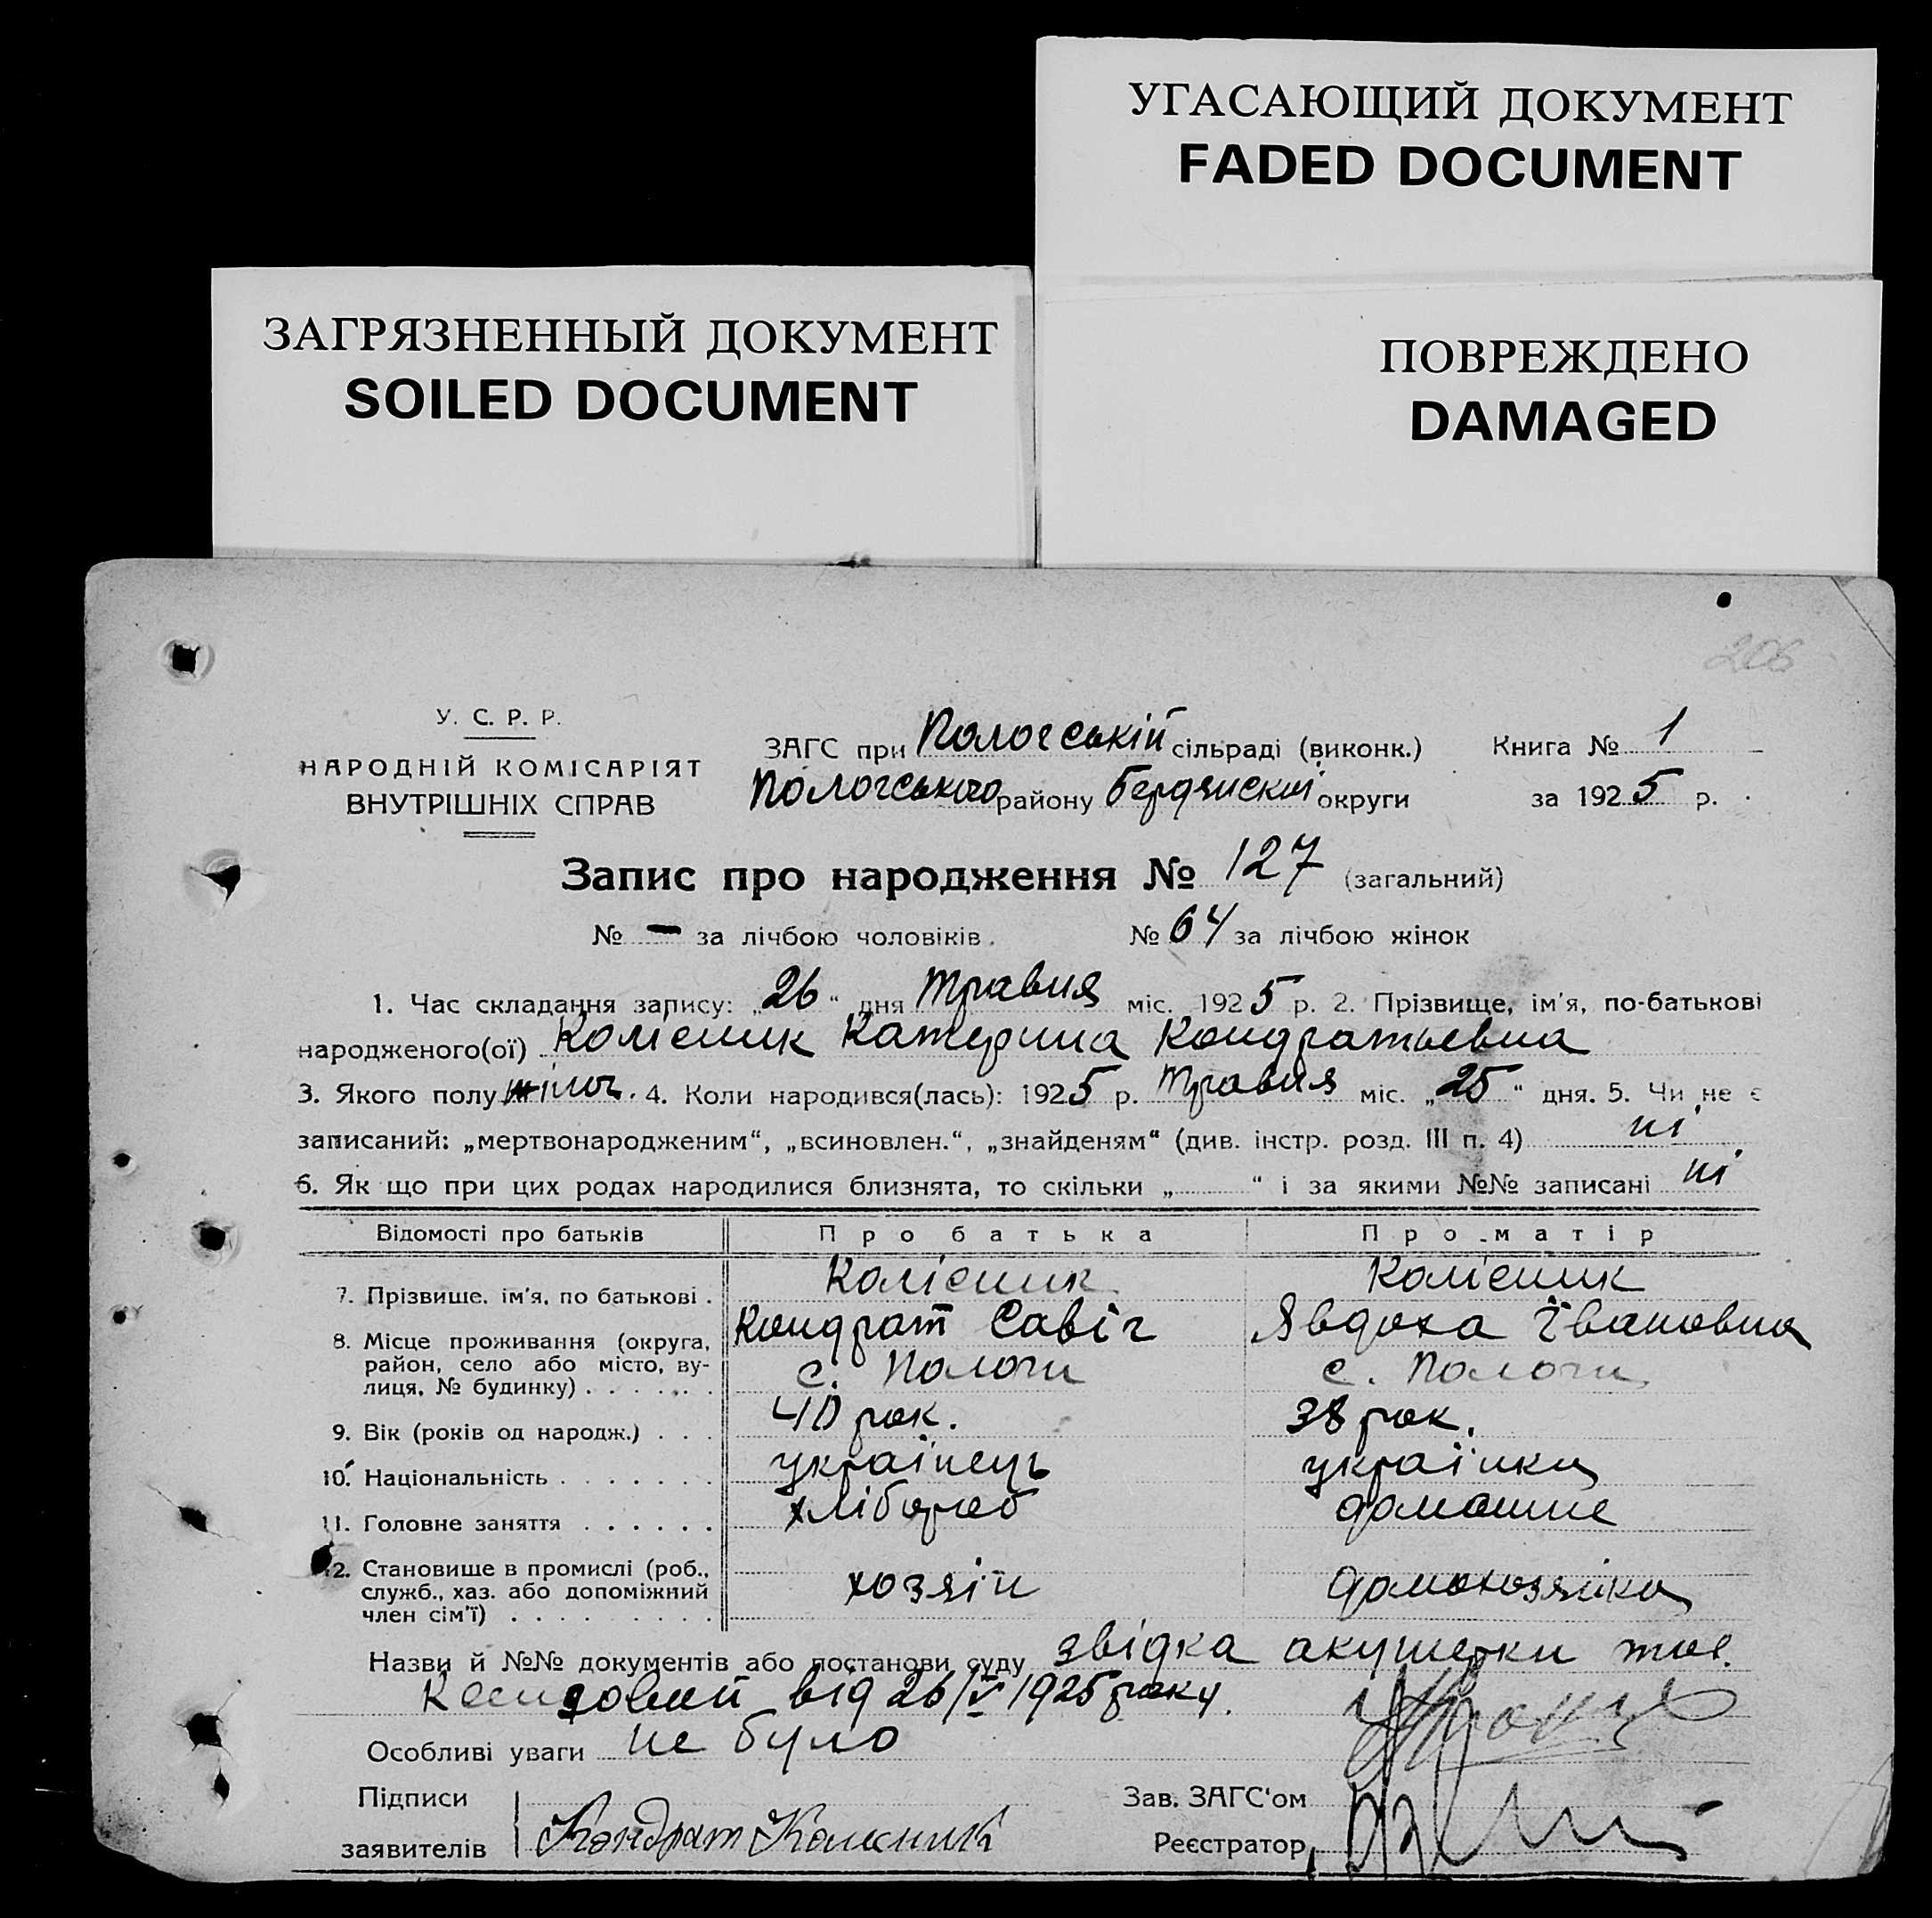 УГАСАЮЩИЙ ДОКУМЕНТ
FADED DOCUMENT
ЗАГРЯЗНЕННЫЙ ДОКУМЕНТ
SOILED DOCUMENT
ПОВРЕЖДЕНО
DAMAGED
206
У. С. Р. Р.
НАРОДНІЙ КОМІСАРІЯТ
ВНУТРІШНІХ СПРАВ
ЗАГС при Пологській сільраді (виконк.)
Пологського району Бердянской округи
Книга № 1
за 1925 р.
Запис про народження № 127 (загальний)
№ — за лічбою чоловіків. № 64 за лічбою жінок
1. Час складання запису: „26“ дня травня міс. 1925 р. 2. Прізвище, ім'я, по-батькові
народженого(ої) Колісник Катерина Кондратьевна
3. Якого полу жіноч. 4. Коли народився(лась): 1925 р. травня міс. „25“ дня. 5. Чи не є
записаний: „мертвонародженим“, „всиновлен.“, „знайденям“ (див. інстр. розд. III п. 4) ні
6. Як що при цих родах народилися близнята, то скільки „ “ і за якими №№ записані ні
Відомості про батьків Про батька Про матір
7. Прізвище, ім'я, по батькові . Колісник Колісник
Кондрат Савіч Явдоха Івановна
8. Місце проживання (округа, район, село або місто, ву-лиця, № будинку) . . . . . . с. Пологи с. Пологи
9. Вік (років од народж.) . . . 40 рок. 38 рок.
10. Національність . . . . . . . українець українка
11. Головне заняття . . . . . . хлібороб домашне
12. Становище в промислі (роб., служб., хаз. або допоміжний член сім'ї) . . . . . . . . . хозяін домохозяйка
Назви й №№ документів або постанови суду звідка акушерки тов.
від 26/V 1925 року.
Особливі уваги не було
Підписи
заявителів Кондрат Колисник
Зав. ЗАГС'ом
Реєстратор